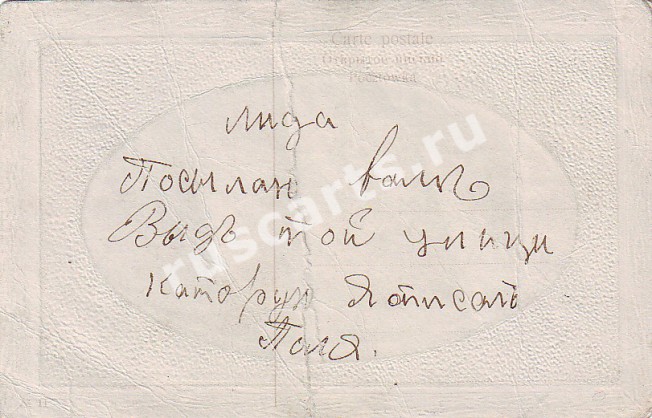 Carte postale
Открытое письмо
Pocztówka
лида
Посылаю вамъ
Выдъ той улици
каторую я описалъ
Поля.
№ 11
ruscarts.ru